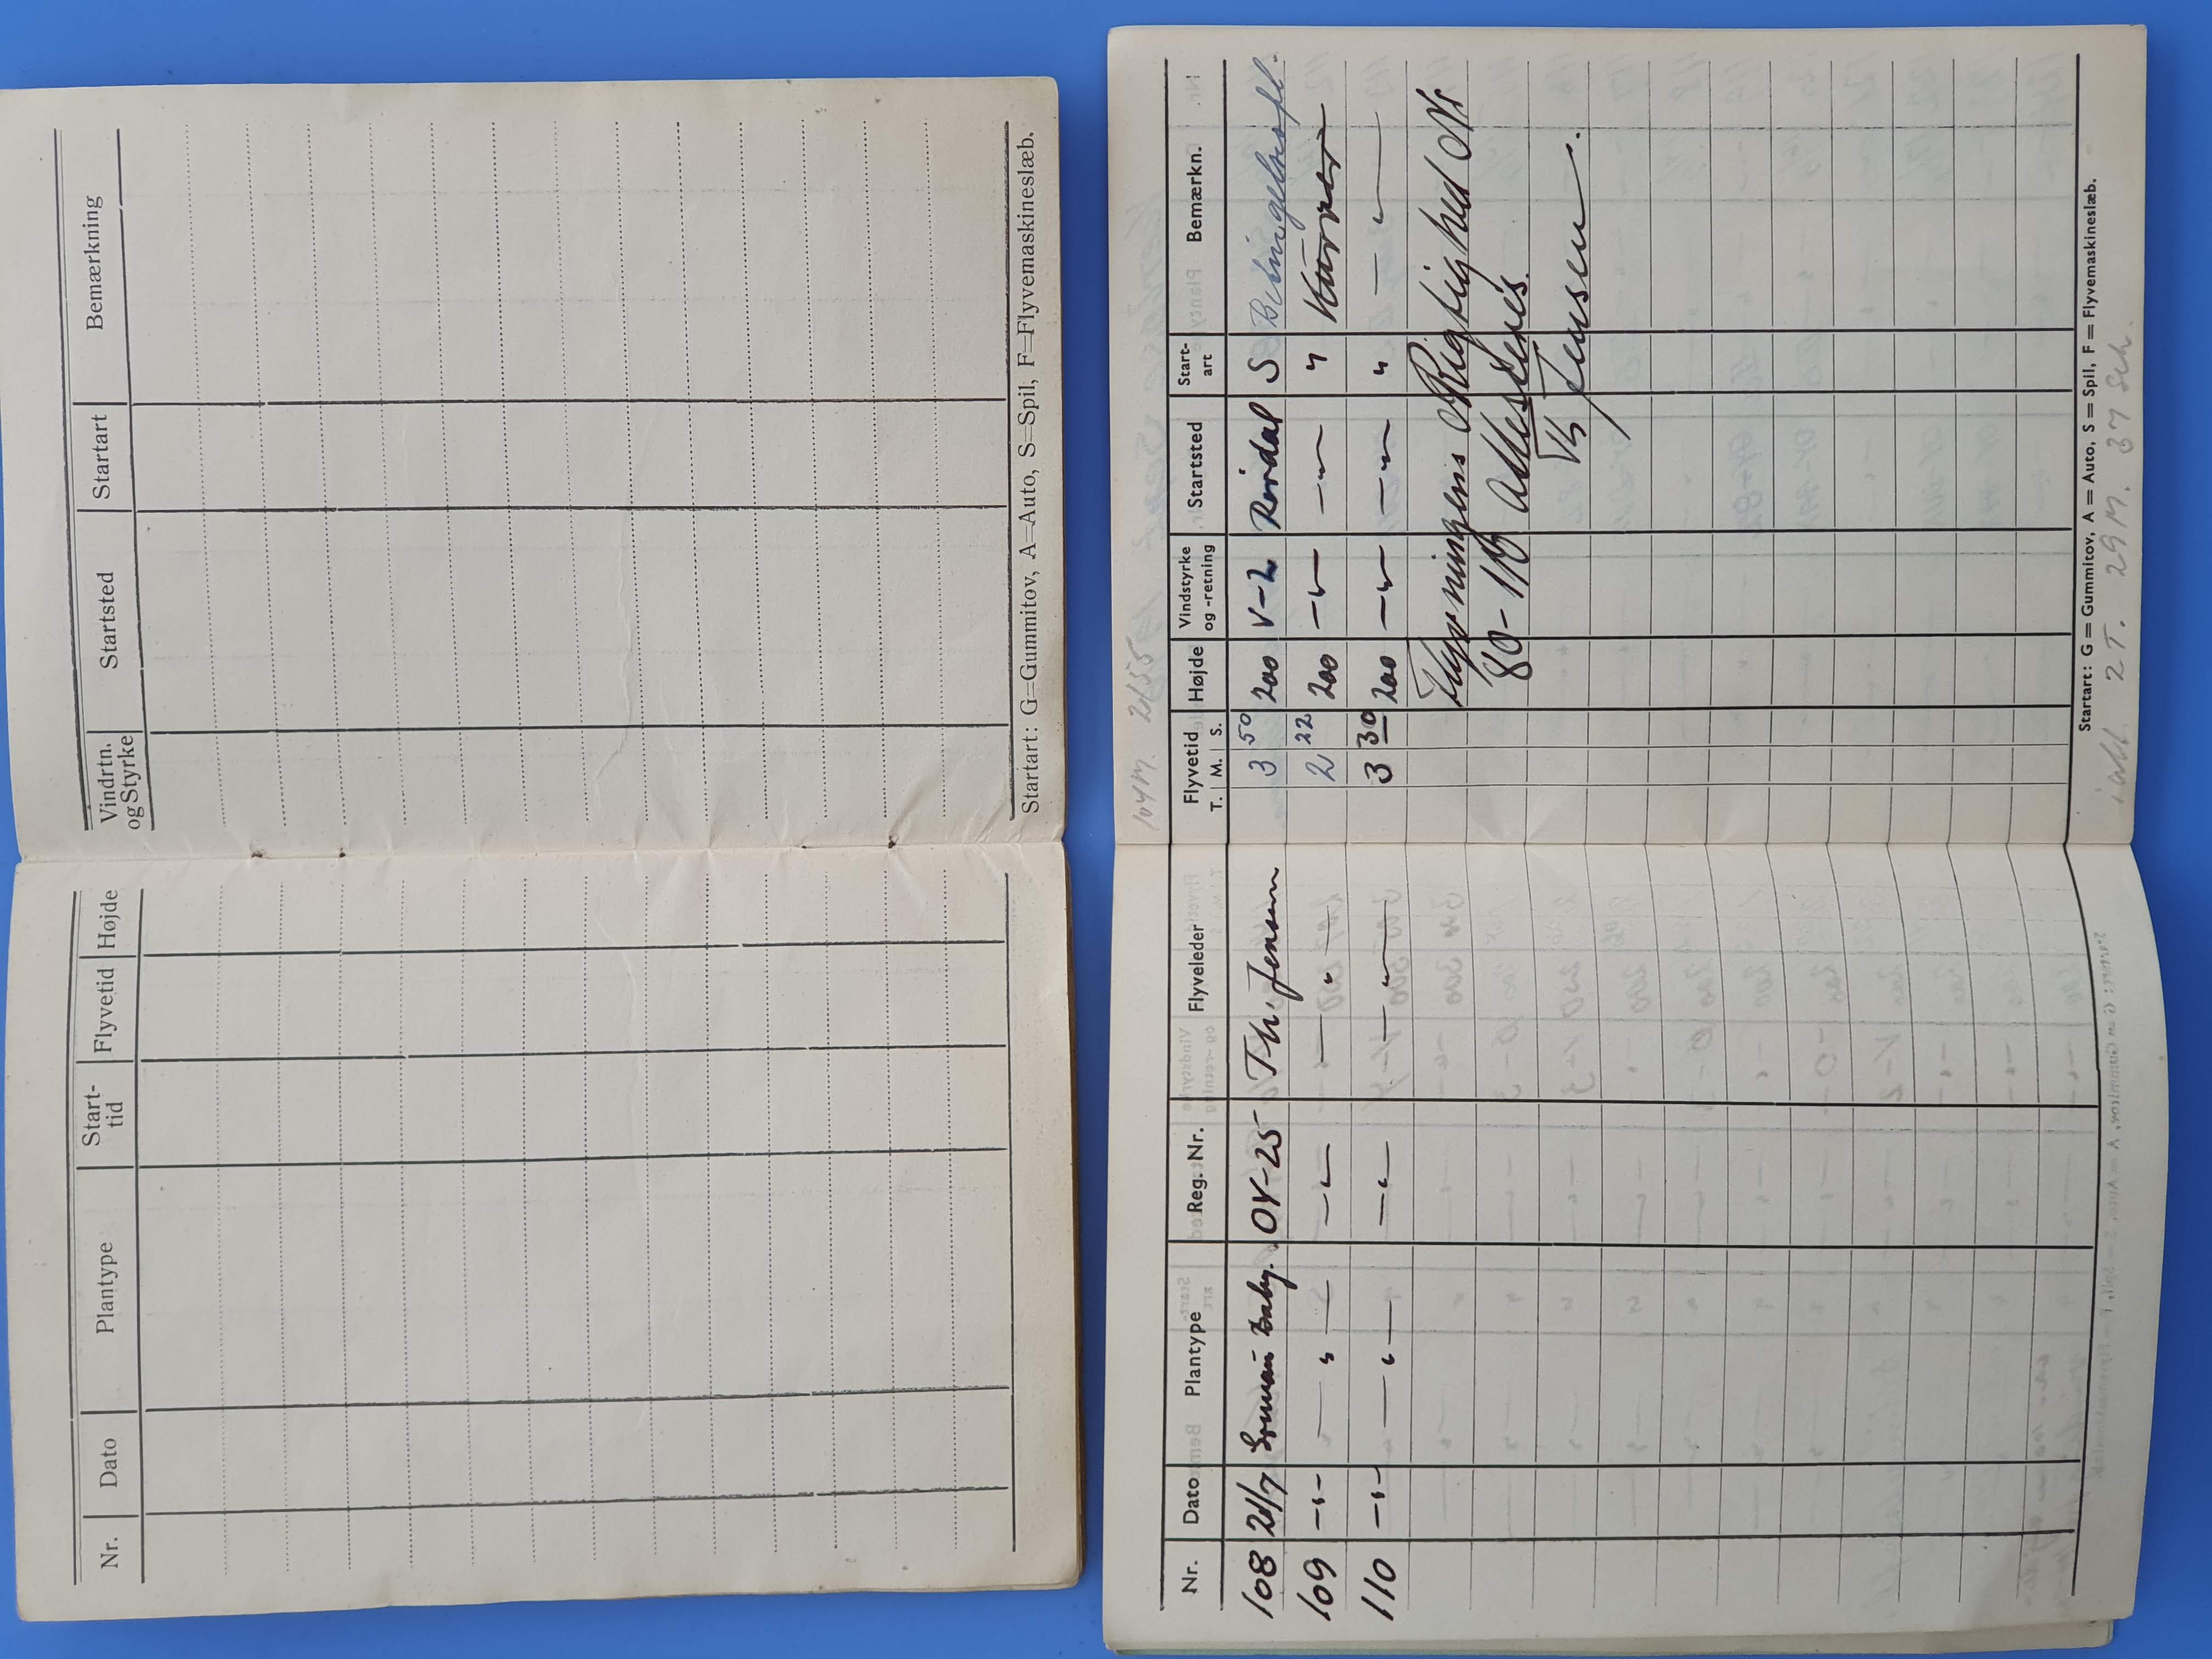 Nr. Dato Plantype Start-tid Flyvetid Højde Vindrtn. og Styrke Startsted Startart Bemærkning
Startart: G=Gummitov, A=Auto, S=Spil, F=Flyvemaskineslæb.
104 M. 21/55
Nr. Dato Plantype Reg. Nr. Flyveleder Flyvetid T. M. S. Højde Vindstyrke og -retning Startsted Start-art Bemærkn.
108 21/7 Grunau Baby. OY-25 Th. Jensen 3 50 200 V-2 Rørdal S Betingelsesfl.
109 —〃— —〃— —〃— —〃— 2 22 200 —〃— —〃— 〃 Kurver
110 —〃— —〃— —〃— —〃— 3 30 200 —〃— —〃— 〃 —〃—
Flyvningens Rigtighed Nr
80-110 Attesteres.
Th Jensen.
Startart: G = Gummitov, A = Auto, S = Spil, F = Flyvemaskineslæb.
ialt. 2 T. 29 M. 37 Sek.